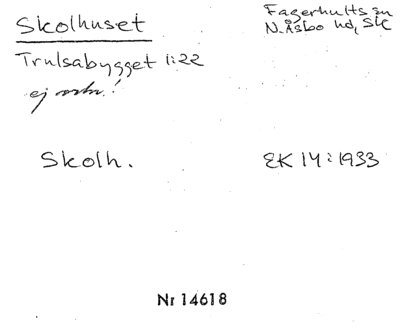 Skolhuset
Fagerhults sn
N. Åsbo hd, Sk
Trulsabygget 1:22
ej
Skolh.
EK 14:1933
Nr 14618